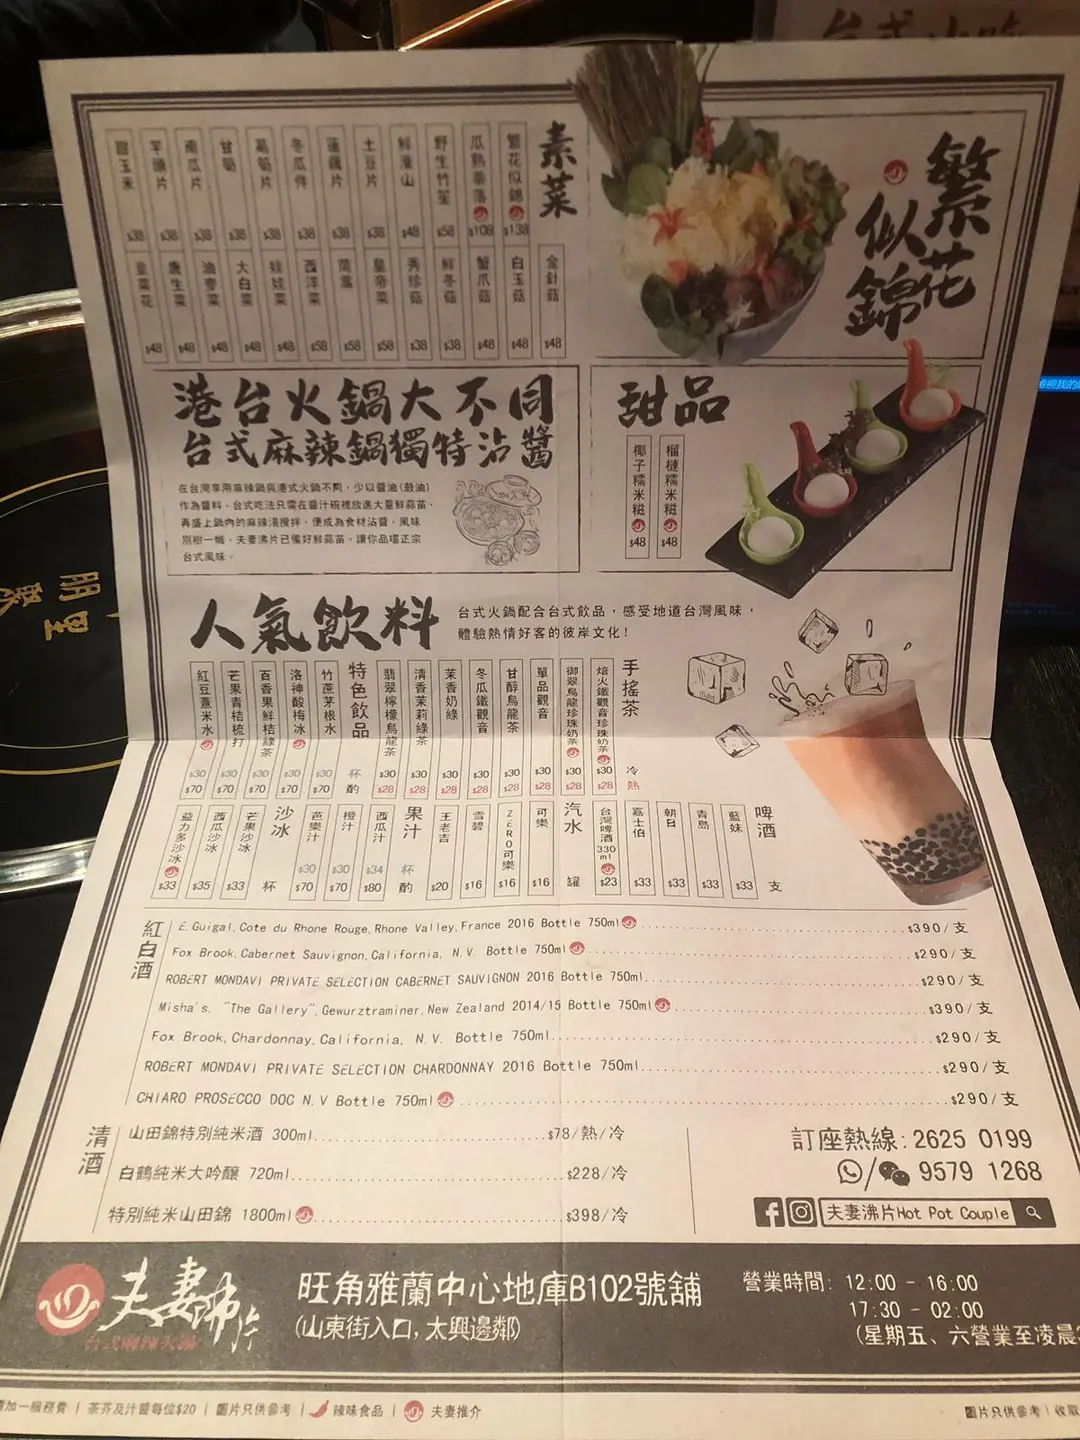 台式小吃
素菜
繁花似錦 $138
瓜熟蒂落 $108
野生竹笙 $58
鮮淮山 $48
土豆片 $38
蓮藕片 $38
冬瓜件 $38
萵筍片 $38
甘筍 $38
南瓜片 $38
芋頭片 $38
甜玉米 $38
金針菇 $48
白玉菇 $48
蟹爪菇 $48
鮮冬菇 $38
秀珍菇 $38
皇帝菜 $58
茼蒿 $58
西洋菜 $58
娃娃菜 $48
大白菜 $48
油麥菜 $48
唐生菜 $48
韭菜花 $48
繁花
似錦
港台火鍋大不同
台式麻辣鍋獨特沾醬
在台灣享用麻辣鍋與港式火鍋不同，少以醬油(豉油)
作為醬料。台式吃法只需在醬汁碗裡放進大量鮮蒜苗，
再盛上鍋內的麻辣湯攪拌，便成為食材沾醬，風味
別樹一幟。夫妻沸片已備好鮮蒜苗，讓你品嚐正宗
台式風味。
甜品
榴槤糯米糍 $48
椰子糯米糍 $48
人氣飲料
台式火鍋配合台式飲品，感受地道台灣風味，
體驗熱情好客的彼岸文化！
手搖茶 冷 熱
焙火鐵觀音珍珠奶茶 $30 $28
御翠烏龍珍珠奶茶 $30 $28
單品觀音 $30 $28
甘醇烏龍茶 $30 $28
冬瓜鐵觀音 $30 $28
茉香奶綠 $30 $28
清香茉莉綠茶 $30 $28
翡翠檸檬烏龍茶 $30 $28
特色飲品 杯 酌
竹蔗茅根水 $30 $70
洛神酸梅冰 $30 $70
百香果鮮桔綠茶 $30 $70
芒果青桔梳打 $30 $70
紅豆薏米水 $30 $70
啤酒 支
藍妹 $33
青島 $33
朝日 $33
嘉士伯 $33
台灣啤酒330ml $23
汽水 罐
可樂 $16
ZERO可樂 $16
雪碧 $16
王老吉 $20
果汁 杯 酌
西瓜汁 $34 $80
橙汁 $30 $70
芭樂汁 $30 $70
沙冰 杯
芒果沙冰 $33
西瓜沙冰 $35
益力多沙冰 $33
紅白酒
E. Guigal, Cote du Rhone Rouge, Rhone Valley, France 2016 Bottle 750ml $390/支
Fox Brook, Cabernet Sauvignon, California, N.V. Bottle 750ml $290/支
ROBERT MONDAVI PRIVATE SELECTION CABERNET SAUVIGNON 2016 Bottle 750ml $290/支
Misha's, "The Gallery", Gewurztraminer, New Zealand 2014/15 Bottle 750ml $390/支
Fox Brook, Chardonnay, California, N.V. Bottle 750ml $290/支
ROBERT MONDAVI PRIVATE SELECTION CHARDONNAY 2016 Bottle 750ml $290/支
CHIARO PROSECCO DOC N.V Bottle 750ml $290/支
清酒
山田錦特別純米酒 300ml $78/熱/冷
白鶴純米大吟釀 720ml $228/冷
特別純米山田錦 1800ml $398/冷
訂座熱線: 2625 0199
9579 1268
夫妻沸片Hot Pot Couple
夫妻沸片
台式麻辣火鍋
旺角雅蘭中心地庫B102號舖
(山東街入口, 太興邊鄰)
營業時間: 12:00 - 16:00
17:30 - 02:00
(星期五、六營業至凌晨
加一服務費 | 茶芥及汁醬每位$20 | 圖片只供參考 | 辣味食品 | 夫妻推介
圖片只供參考 | 收取